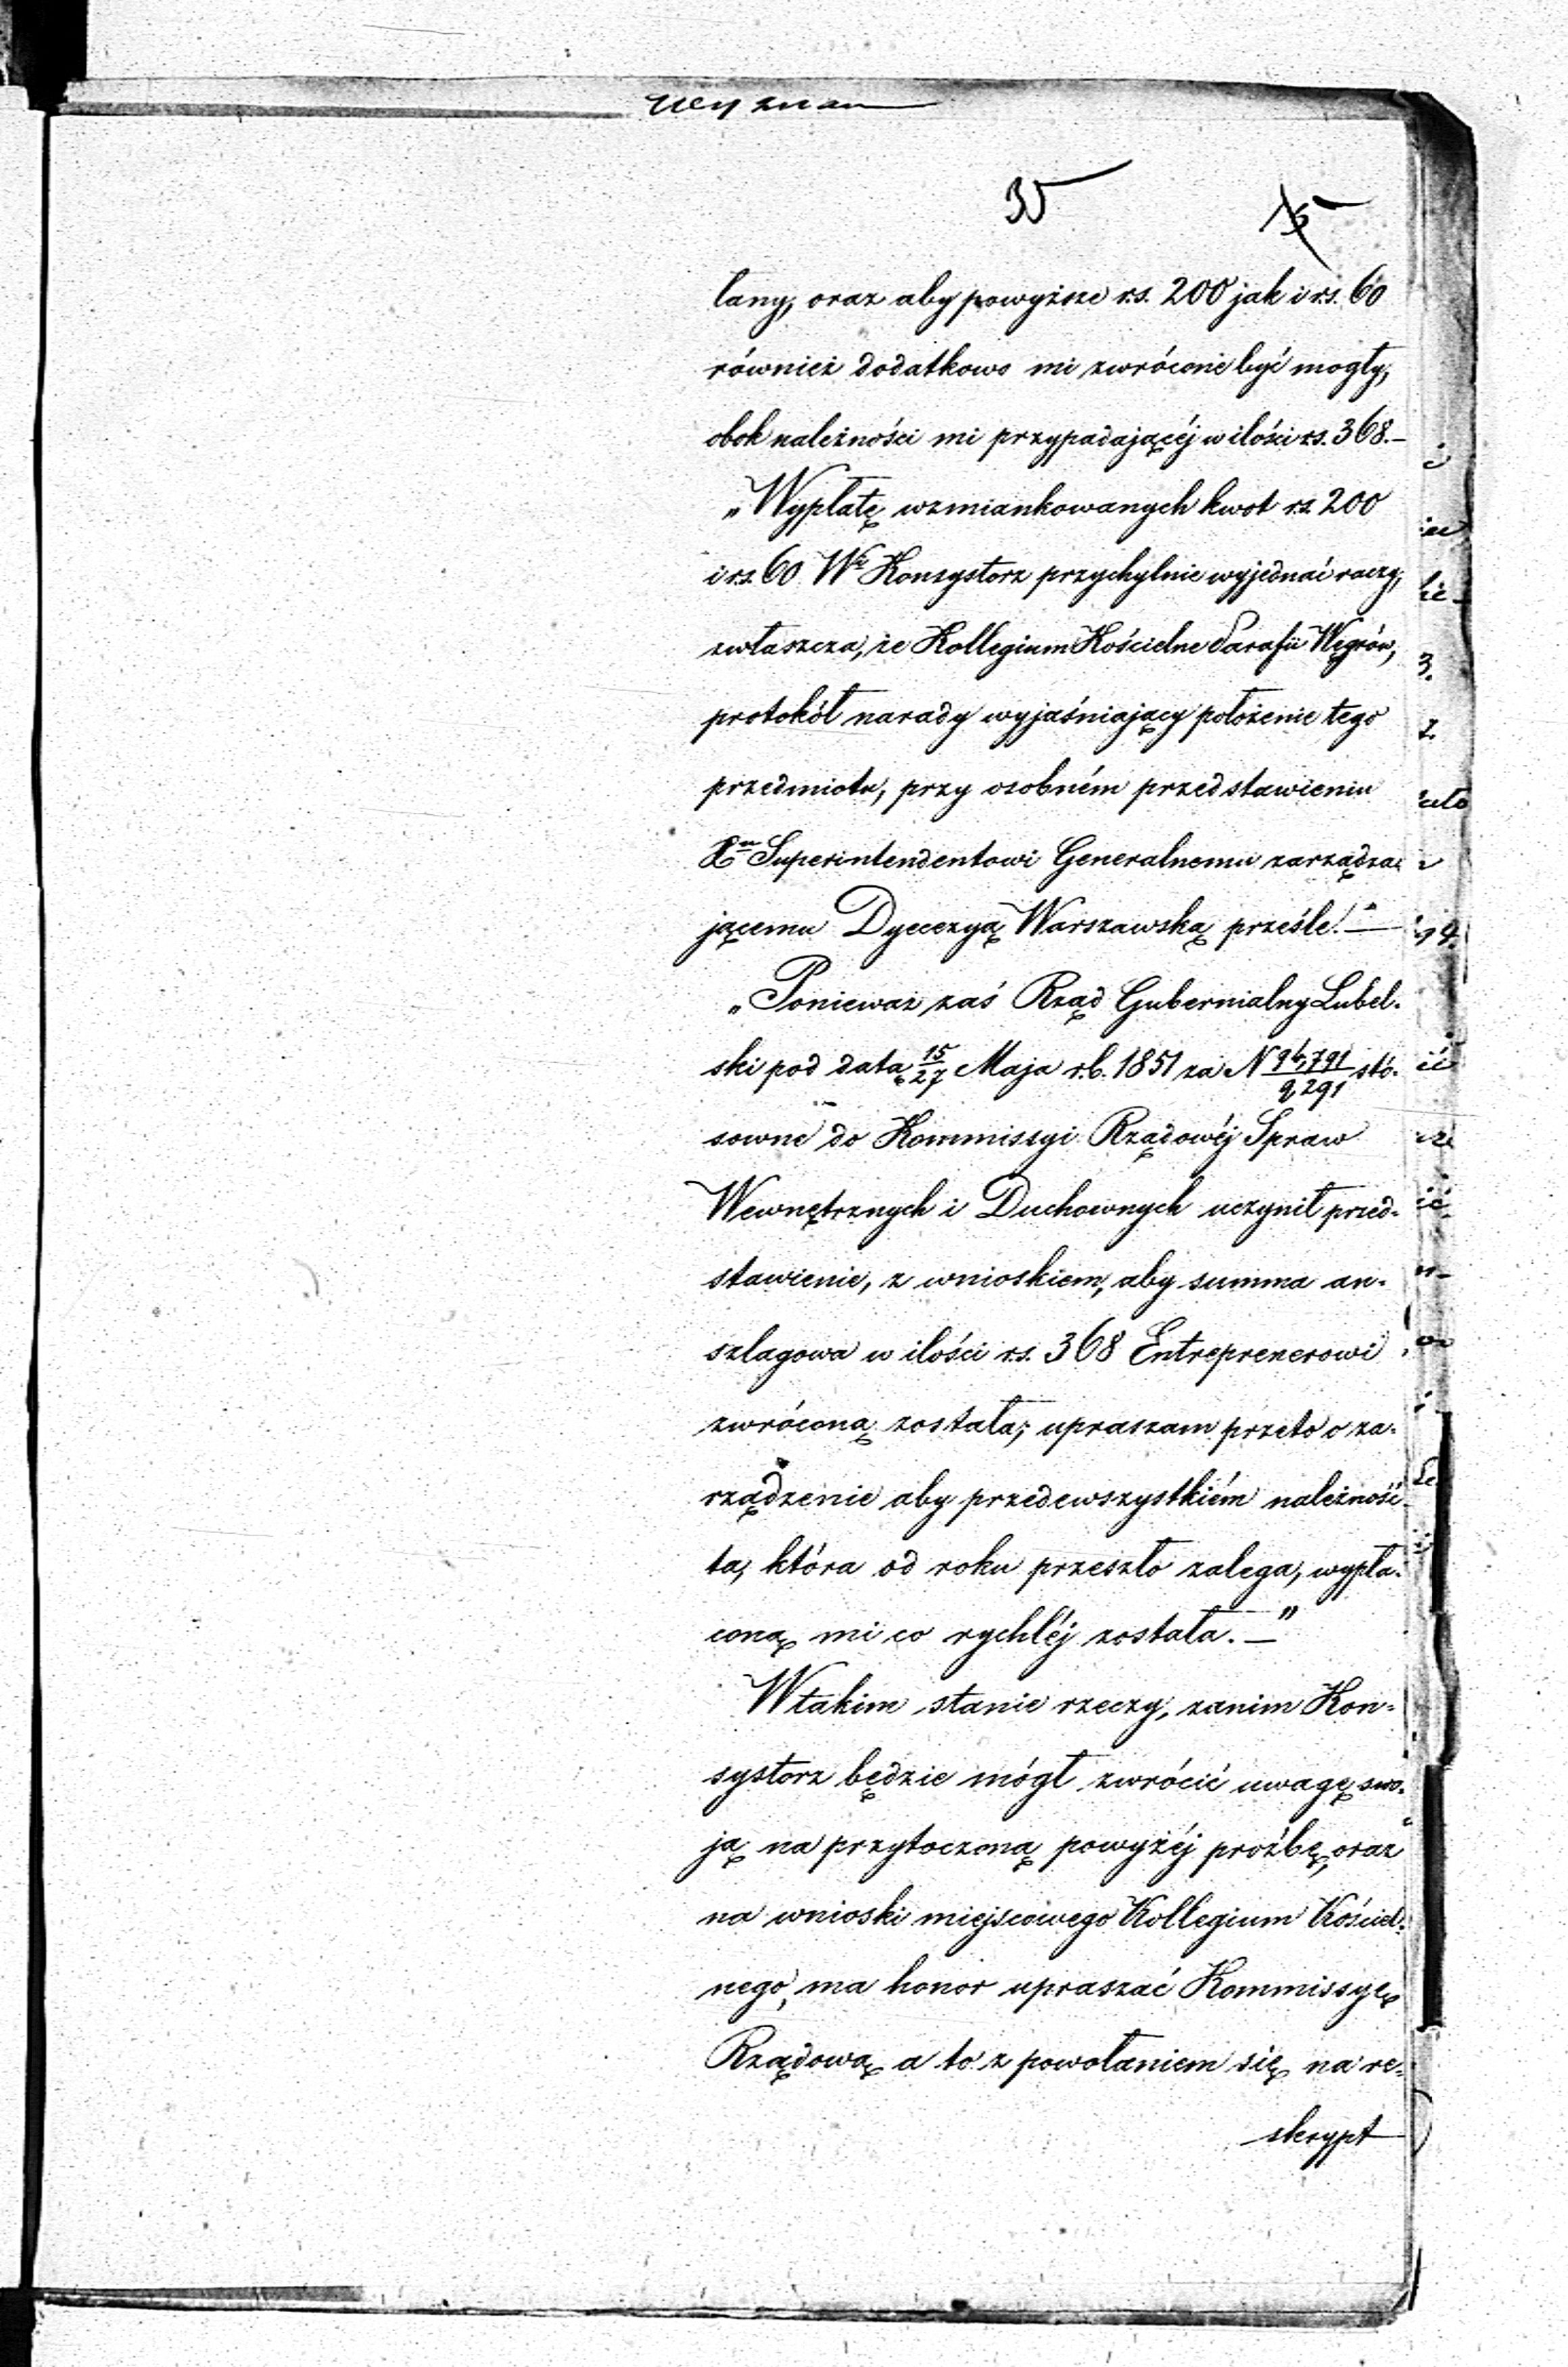 35
lany, oraz aby powyższe rs. 200 jak i rs. 60
również dodatkowo mi zwrócone być mogły,
obok należności mi przypadającéj w ilości rs. 368.—
„Wypłatę wzmiankowanych kwot rs 200
i rs. 60 Konsystorz przychylnie wyjednać raczy,
zwłaszcza, że Kollegium Kościelne Parafii Węgrów,
protokół narady wyjaśniający położenie tego
przedmiotu, przy osobném przedstawieniu
Superintendentowi Generalnemu zarządza-
jącemu Dyecezyą Warszawską prześle.—
„Ponieważ zaś Rząd Gubernialny Lubel-
ski pod datą 15/27 Maja r.b. 1851 za N stó-
sowne do Kommissyi Rządowéj Spraw
Wewnętrznych i Duchownych uczynił przed-
stawienie, z wnioskiem, aby summa an-
szlagowa w ilości rs. 368 Entreprenerowi
zwróconą została; upraszam przeto o za-
rządzenie aby przedewszystkiém należność
ta, która od roku przeszło zalega, wypła-
coną mi co rychléj została.—"
W takim stanie rzeczy, zanim Kon-
systorz będzie mógł zwrócić uwagę swo-
ją na przytoczoną powyżéj proźbę, oraz
na wnioski miejscowego Kollegium Kościel-
nego, ma honor upraszać Kommissyę
Rządową a to z powołaniem się na re-
skrypt